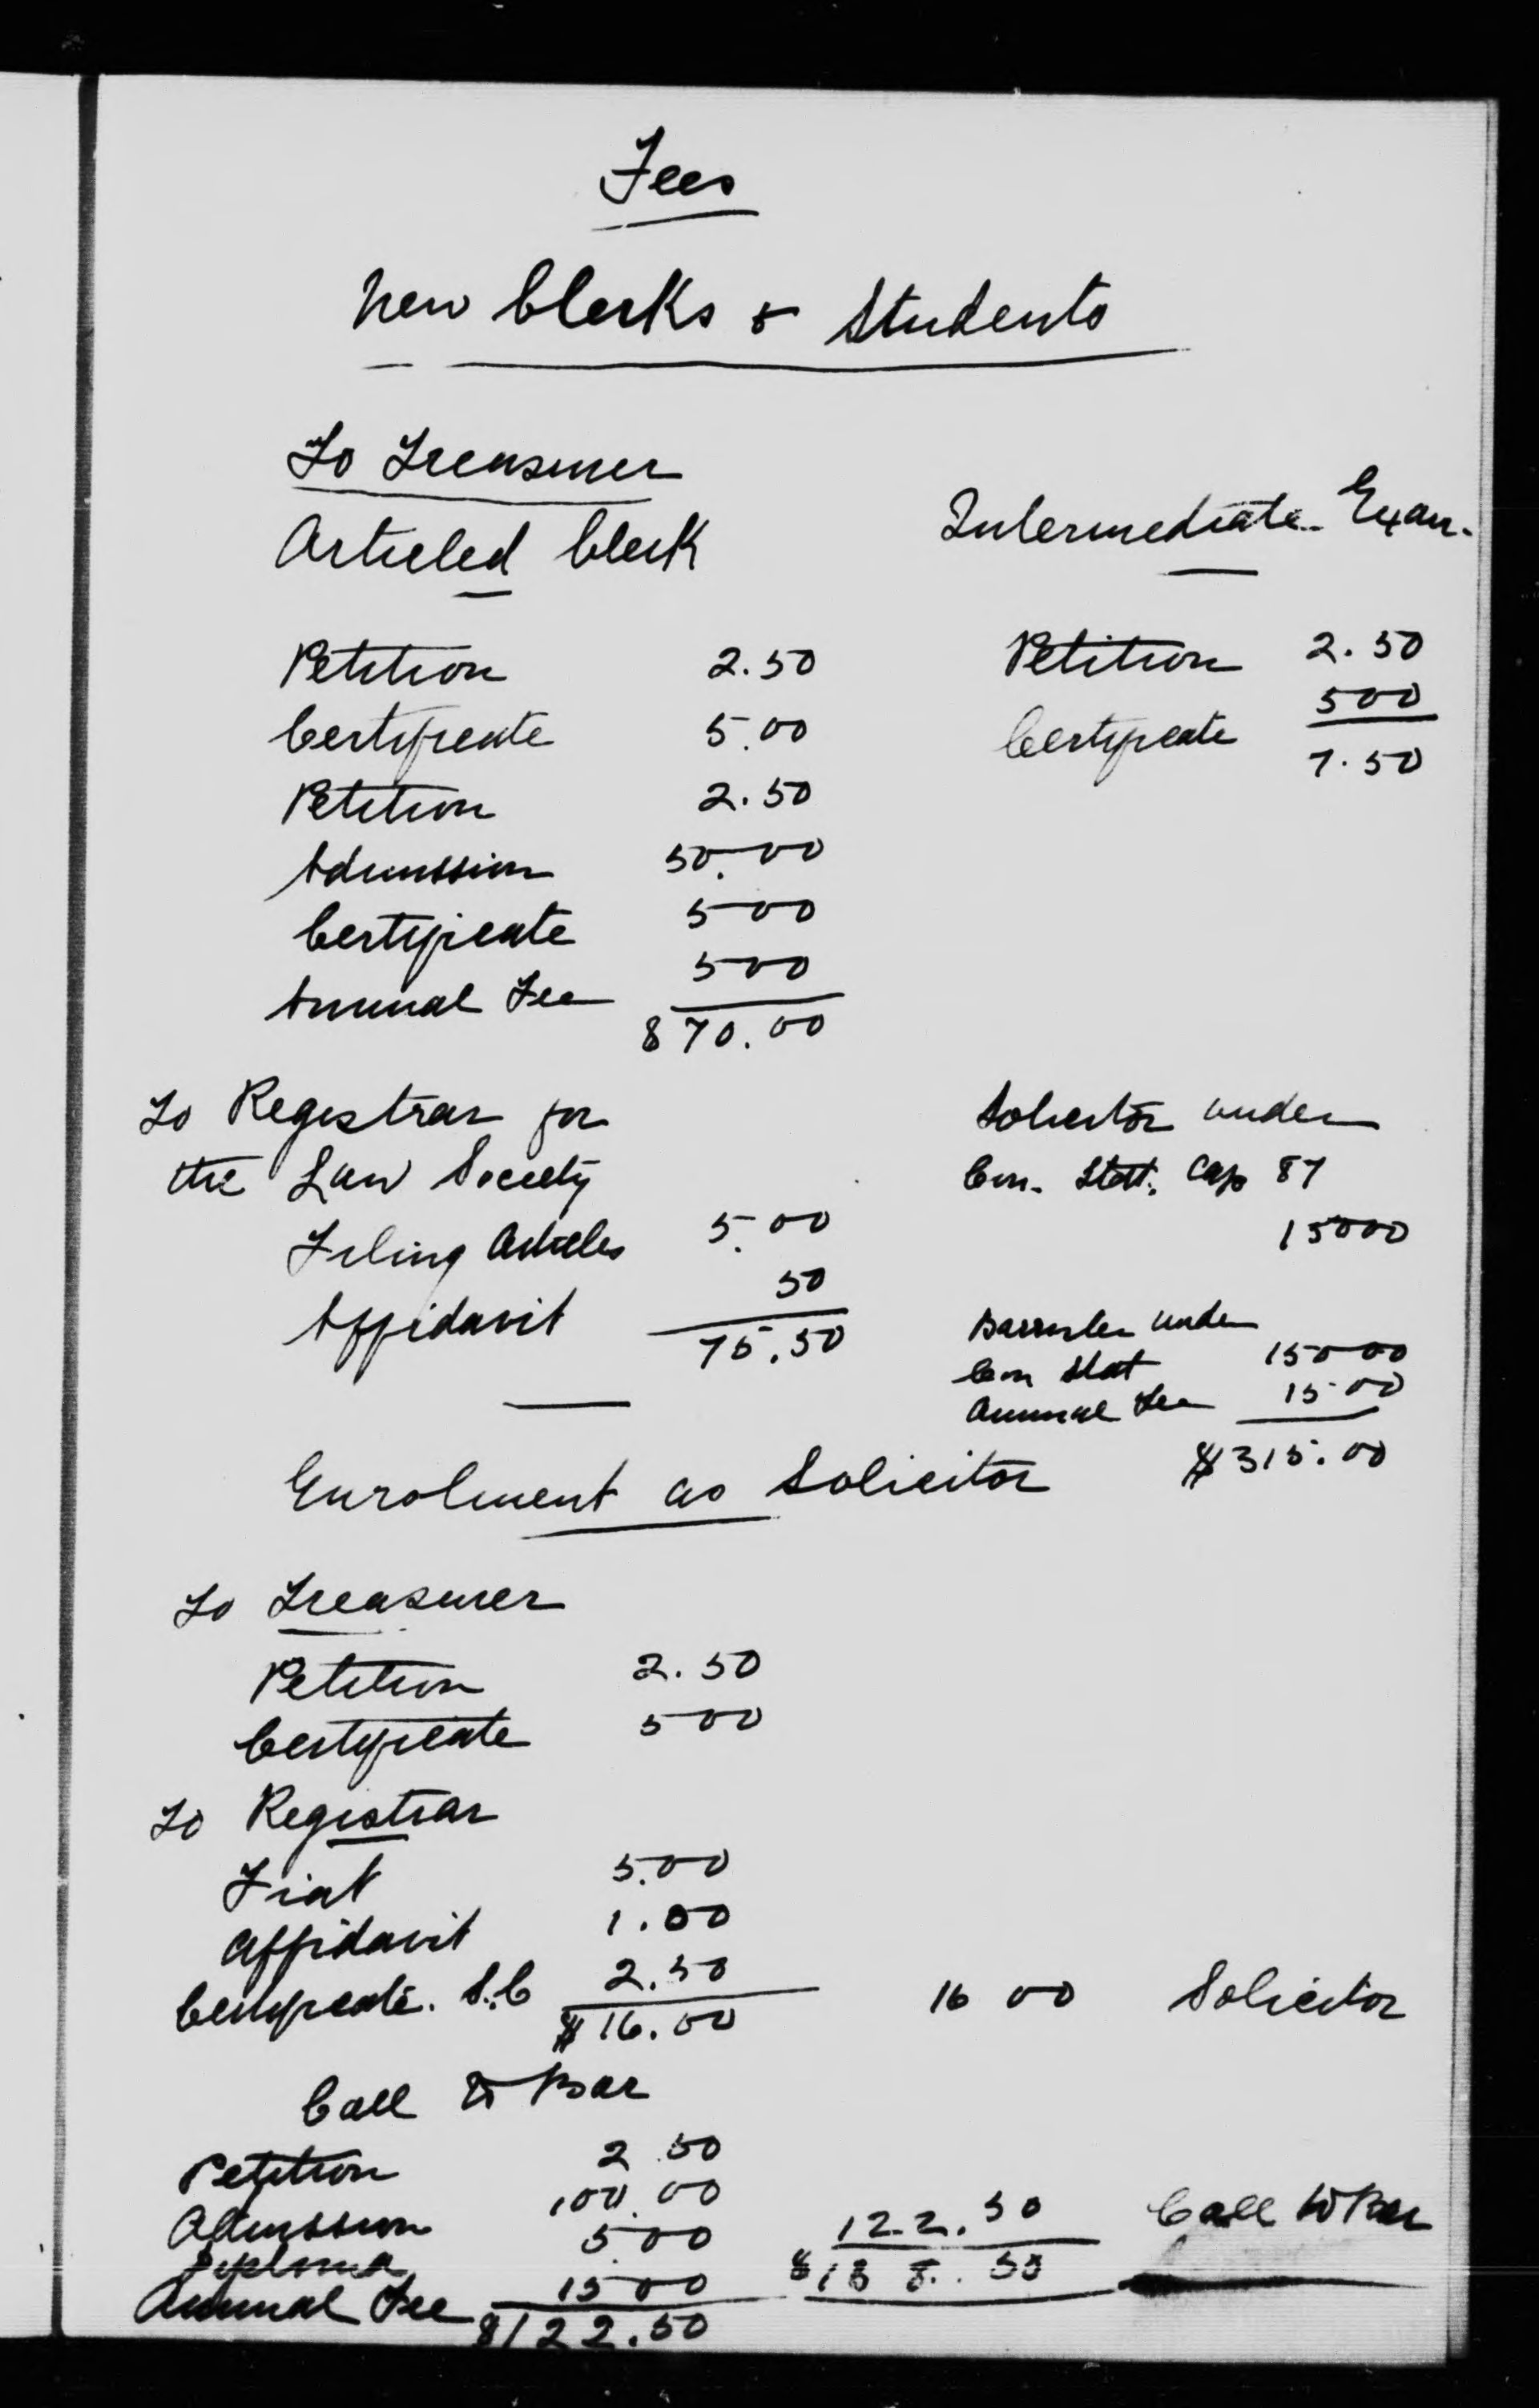 Fees
New Clerks & Students
To Treasurer
Articled Clerk
Petition 2.50
Certificate 5.00
Petition 2.50
Admission 50.00
Certificate 500
Annual Fee 500
$70.00
Intermediate Exam.
Petition 2.50
Certificate 500
7.50
To Registrar for
the Law Society
Filing Articles 5.00
Affidavit 50
75.50
Solicitor under
Con. Stat. Cap 87
15000
Barrister under
Con Stat 15000
Annual Fee 15.00
$315.00
Enrolment as Solicitor
To Treasurer
Petition 2.50
Certificate 500
To Registrar
Fiat 5.00
Affidavit 1.00
Certificate. S.C 2.50
$16.00
16 00 Solicitor
Call to Bar
Petition 2.50
Admission 100.00
Diploma 5.00
Annual Fee 1500
$122.50
122.50 Call to Bar
$138.50